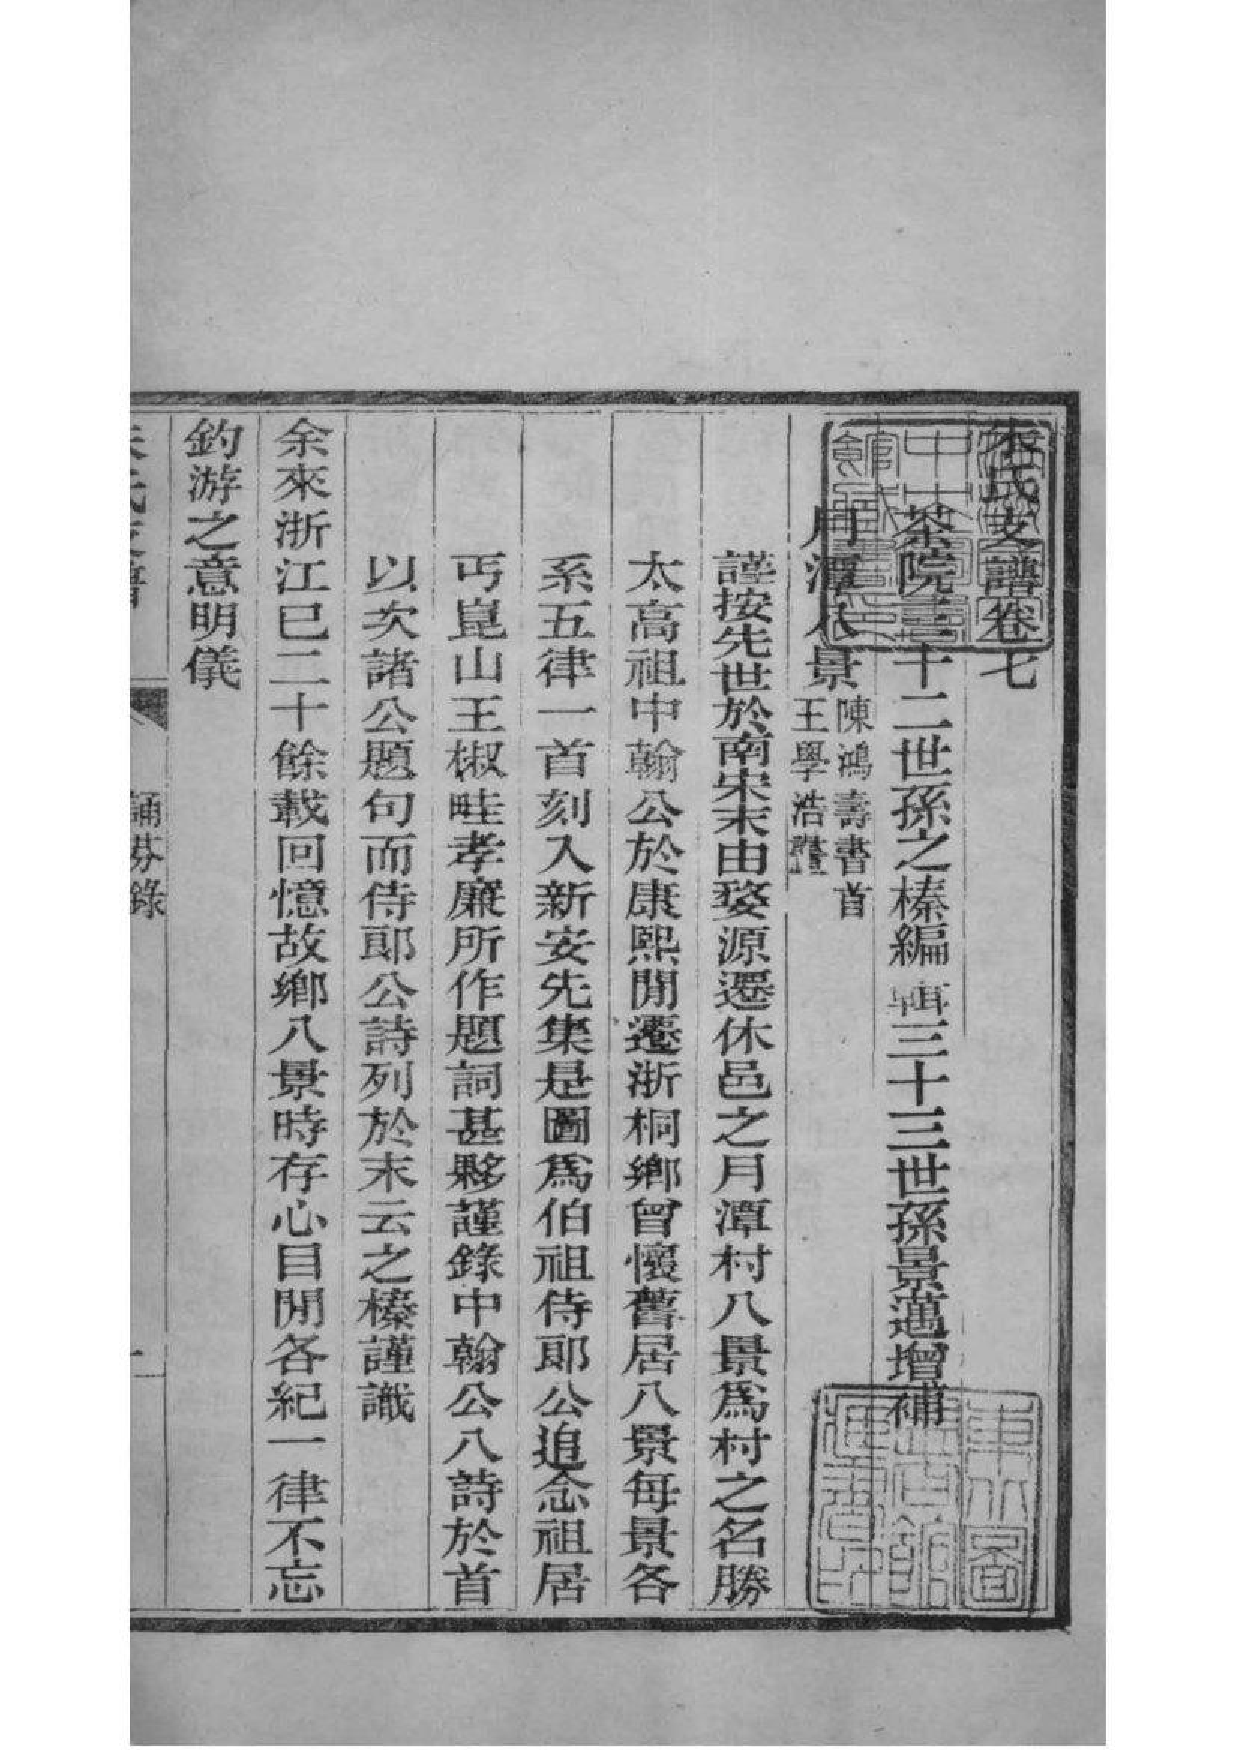 朱氏支譜卷七
茶院三十二世孫之榛編輯三十三世孫景邁增補
月潭八景
陳鴻壽書首
王學浩
謹按先世於南宋末由婺源遷休邑之月潭村八景爲村之名勝
太高祖中翰公於康熙閒遷浙桐鄉曾懷舊居八景每景各
系五律一首刻入新安先集是圖爲伯祖侍郎公追念祖居
丐崑山王椒畦孝廉所作題詞甚夥謹錄中翰公八詩於首
以次諸公題句而侍郎公詩列於末云之榛謹識
余來浙江已二十餘載回憶故鄉八景時存心目閒各紀一律不忘
釣游之意明儀
朱氏支譜
誦芬錄
一